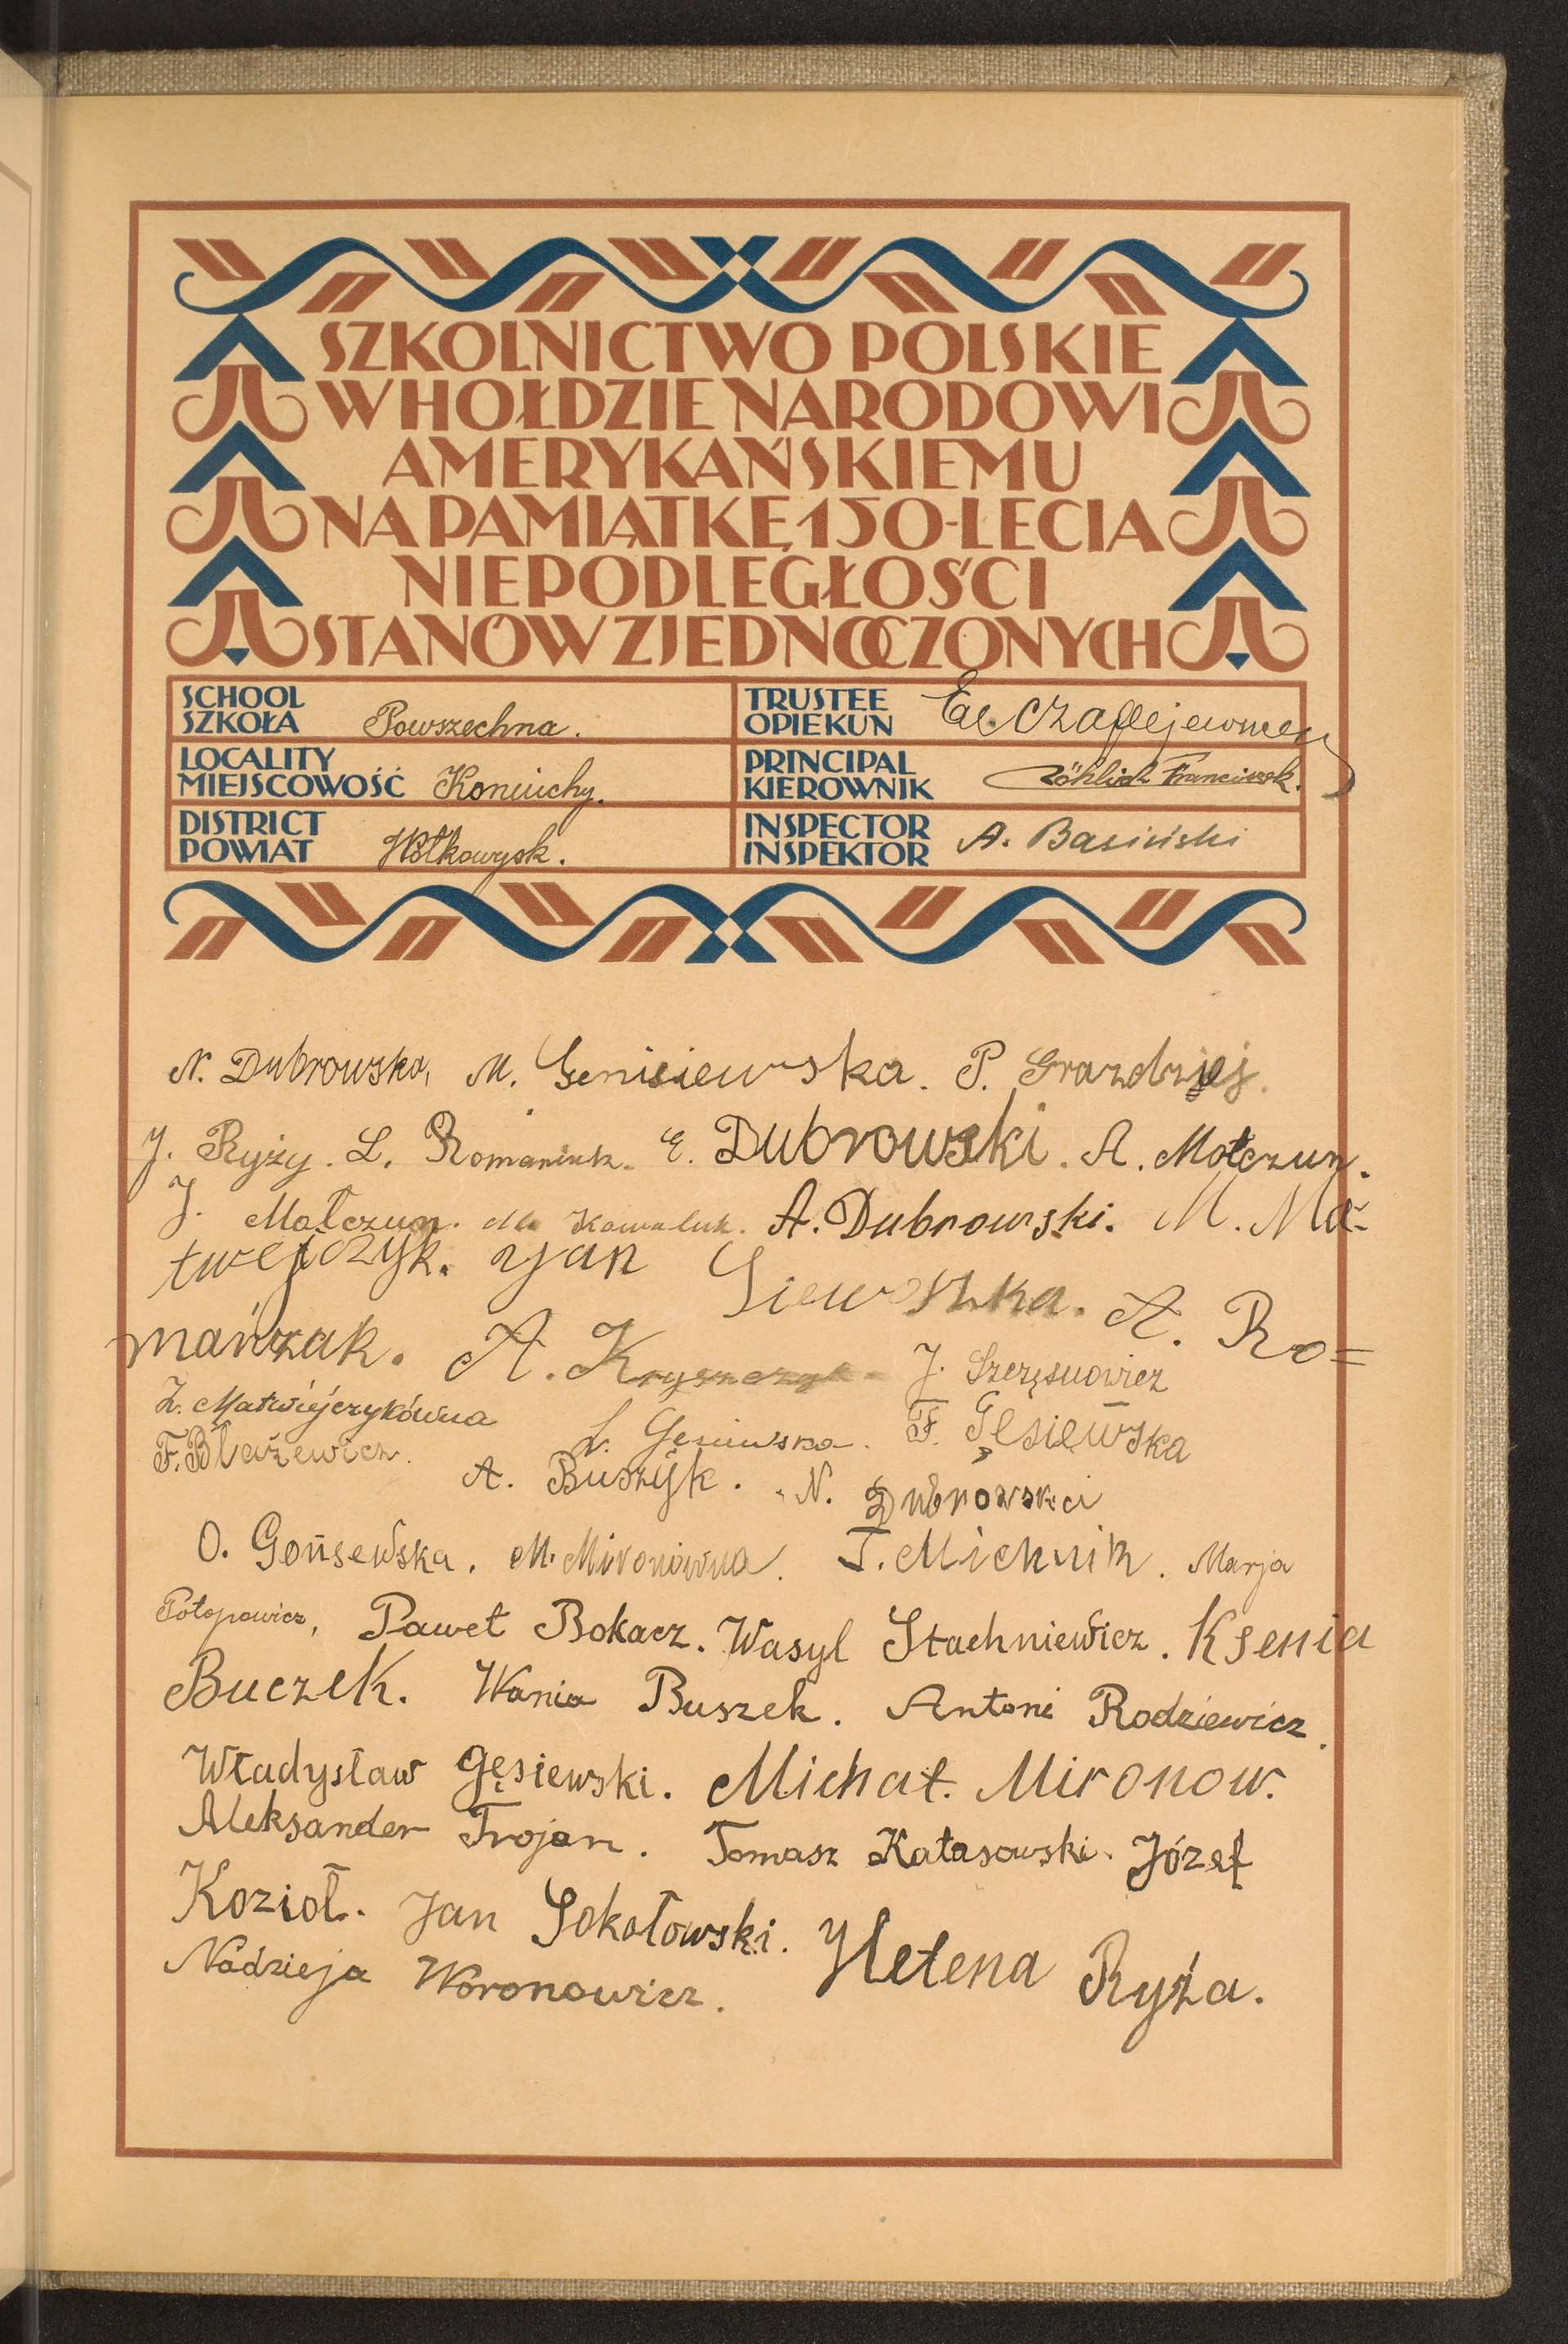 SZKOLNICTWO POLSKIE
W HOŁDZIE NARODOWI
AMERYKAŃSKIEMU
NA PAMIĄTKĘ 150-LECIA
NIEPODLEGŁOŚCI
STANÓW ZJEDNOCZONYCH
SCHOOL
SZKOŁA Powszechna.
TRUSTEE
OPIEKUN
LOCALITY
MIEJSCOWOŚĆ Koniuchy.
PRINCIPAL
KIEROWNIK Franciszek.
DISTRICT
POWIAT Wołkowysk.
INSPECTOR
INSPEKTOR A. Basiński
N. Dubrowska, M. Genisiewska. P. Grazdziej.
J. Ryży. L. Romaniuk. E. Dubrowski. A. Mołczun.
J. Mołczun. Kowaluk. A. Dubrowski. M. Ma-
twejczyk. Jan Siewoszka. A. Ro=
mańzak. A. Kryszczyk. J. Szczęsnowicz
Z. Matwiejczykówna L. Gęsiewska. F. Gęsiewska
F. Błażewicz. A. Buszyk. N. Dubrowski
O. Gońsewska. M. Mironówna. T. Michnik. Marja
Potopowicz, Paweł Bokacz. Wasyl Stachniewicz. Ksenia
Buczek. Wania Buszek. Antoni Rodziewicz.
Władysław Gęsiewski. Michał. Mironow.
Aleksander Trojan. Tomasz Kałasowski. Józef
Kozioł. Jan Sokołowski. Helena Ryża.
Nadzieja Woronowicz.